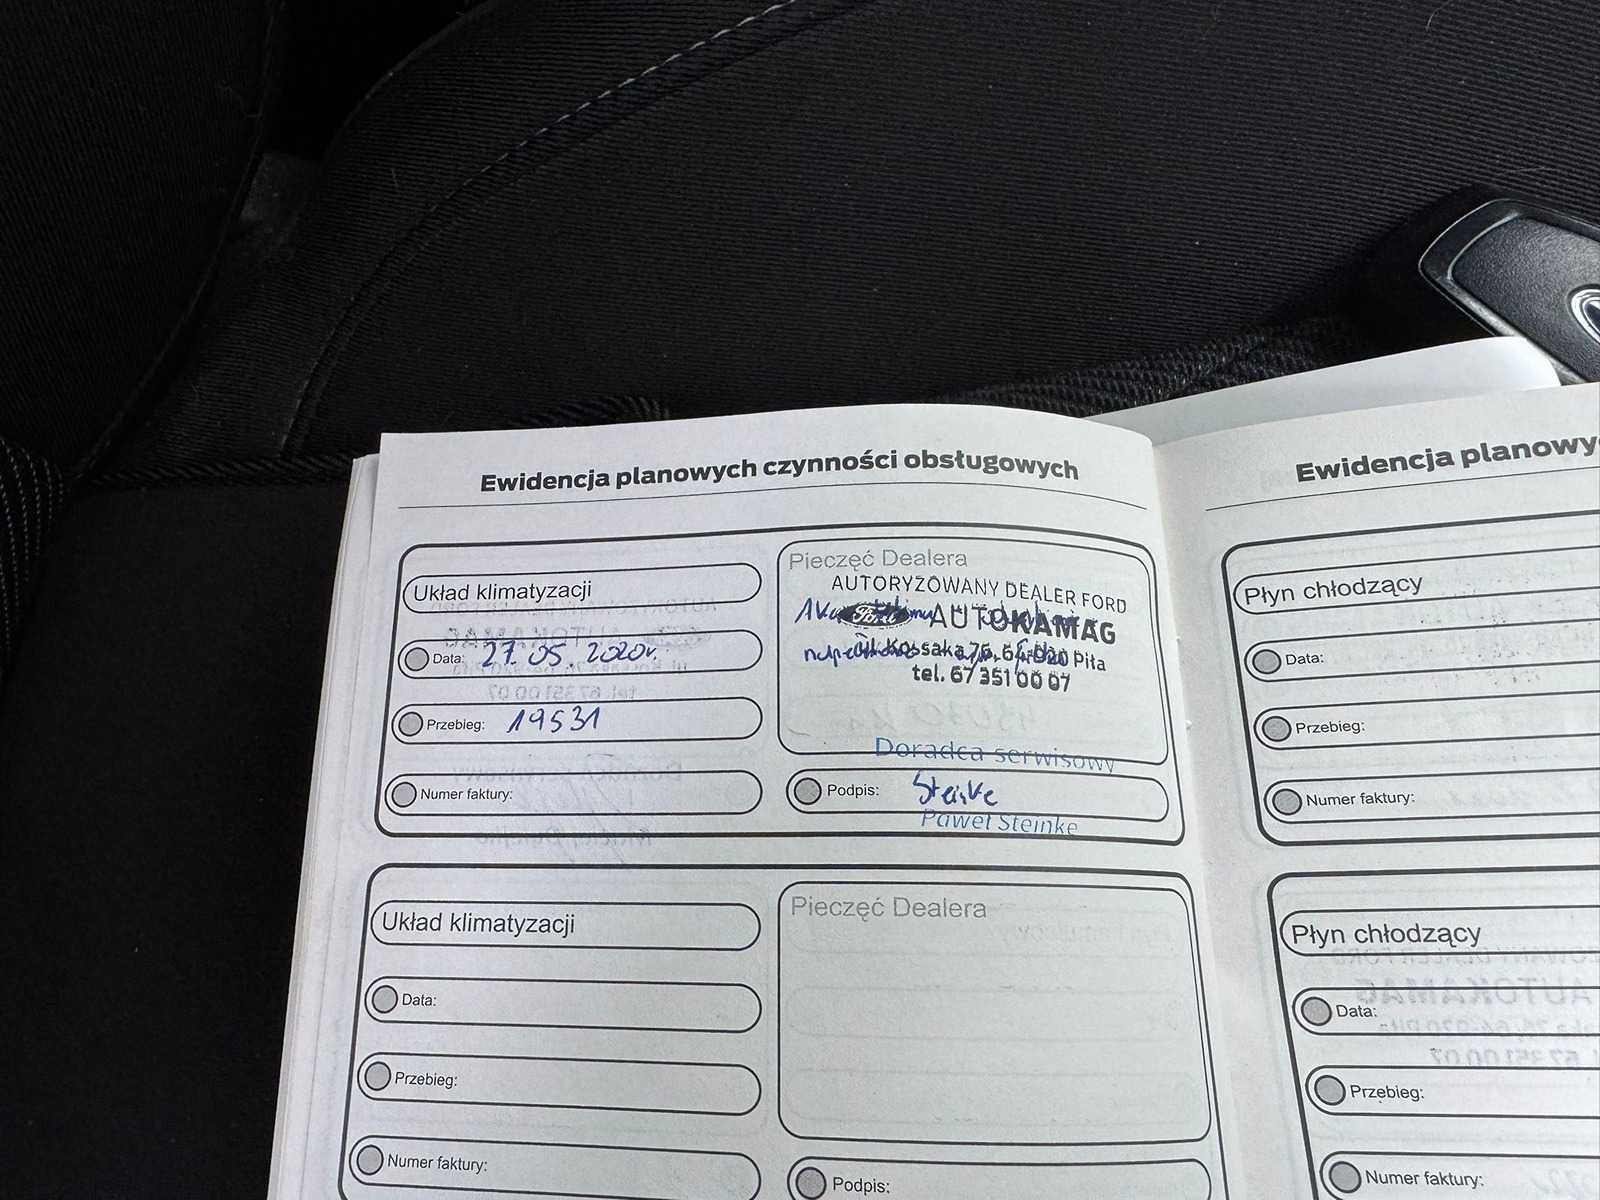 Ewidencja planowych czynności obsługowych
Układ klimatyzacji
Data: 27.05.2020r.
Przebieg: 19531
Numer faktury:
Pieczęć Dealera
AUTORYZOWANY DEALER FORD
Ford AUTOKAMAG
Ul. Kossaka 76, 64-920 Piła
tel. 67 351 00 07
Doradca serwisowy
Podpis: Steinke
Paweł Steinke
Układ klimatyzacji
Data:
Przebieg:
Numer faktury:
Pieczęć Dealera
Podpis:
Ewidencja planowy
Płyn chłodzący
Data:
Przebieg:
Numer faktury:
Płyn chłodzący
Data:
Przebieg:
Numer faktury: